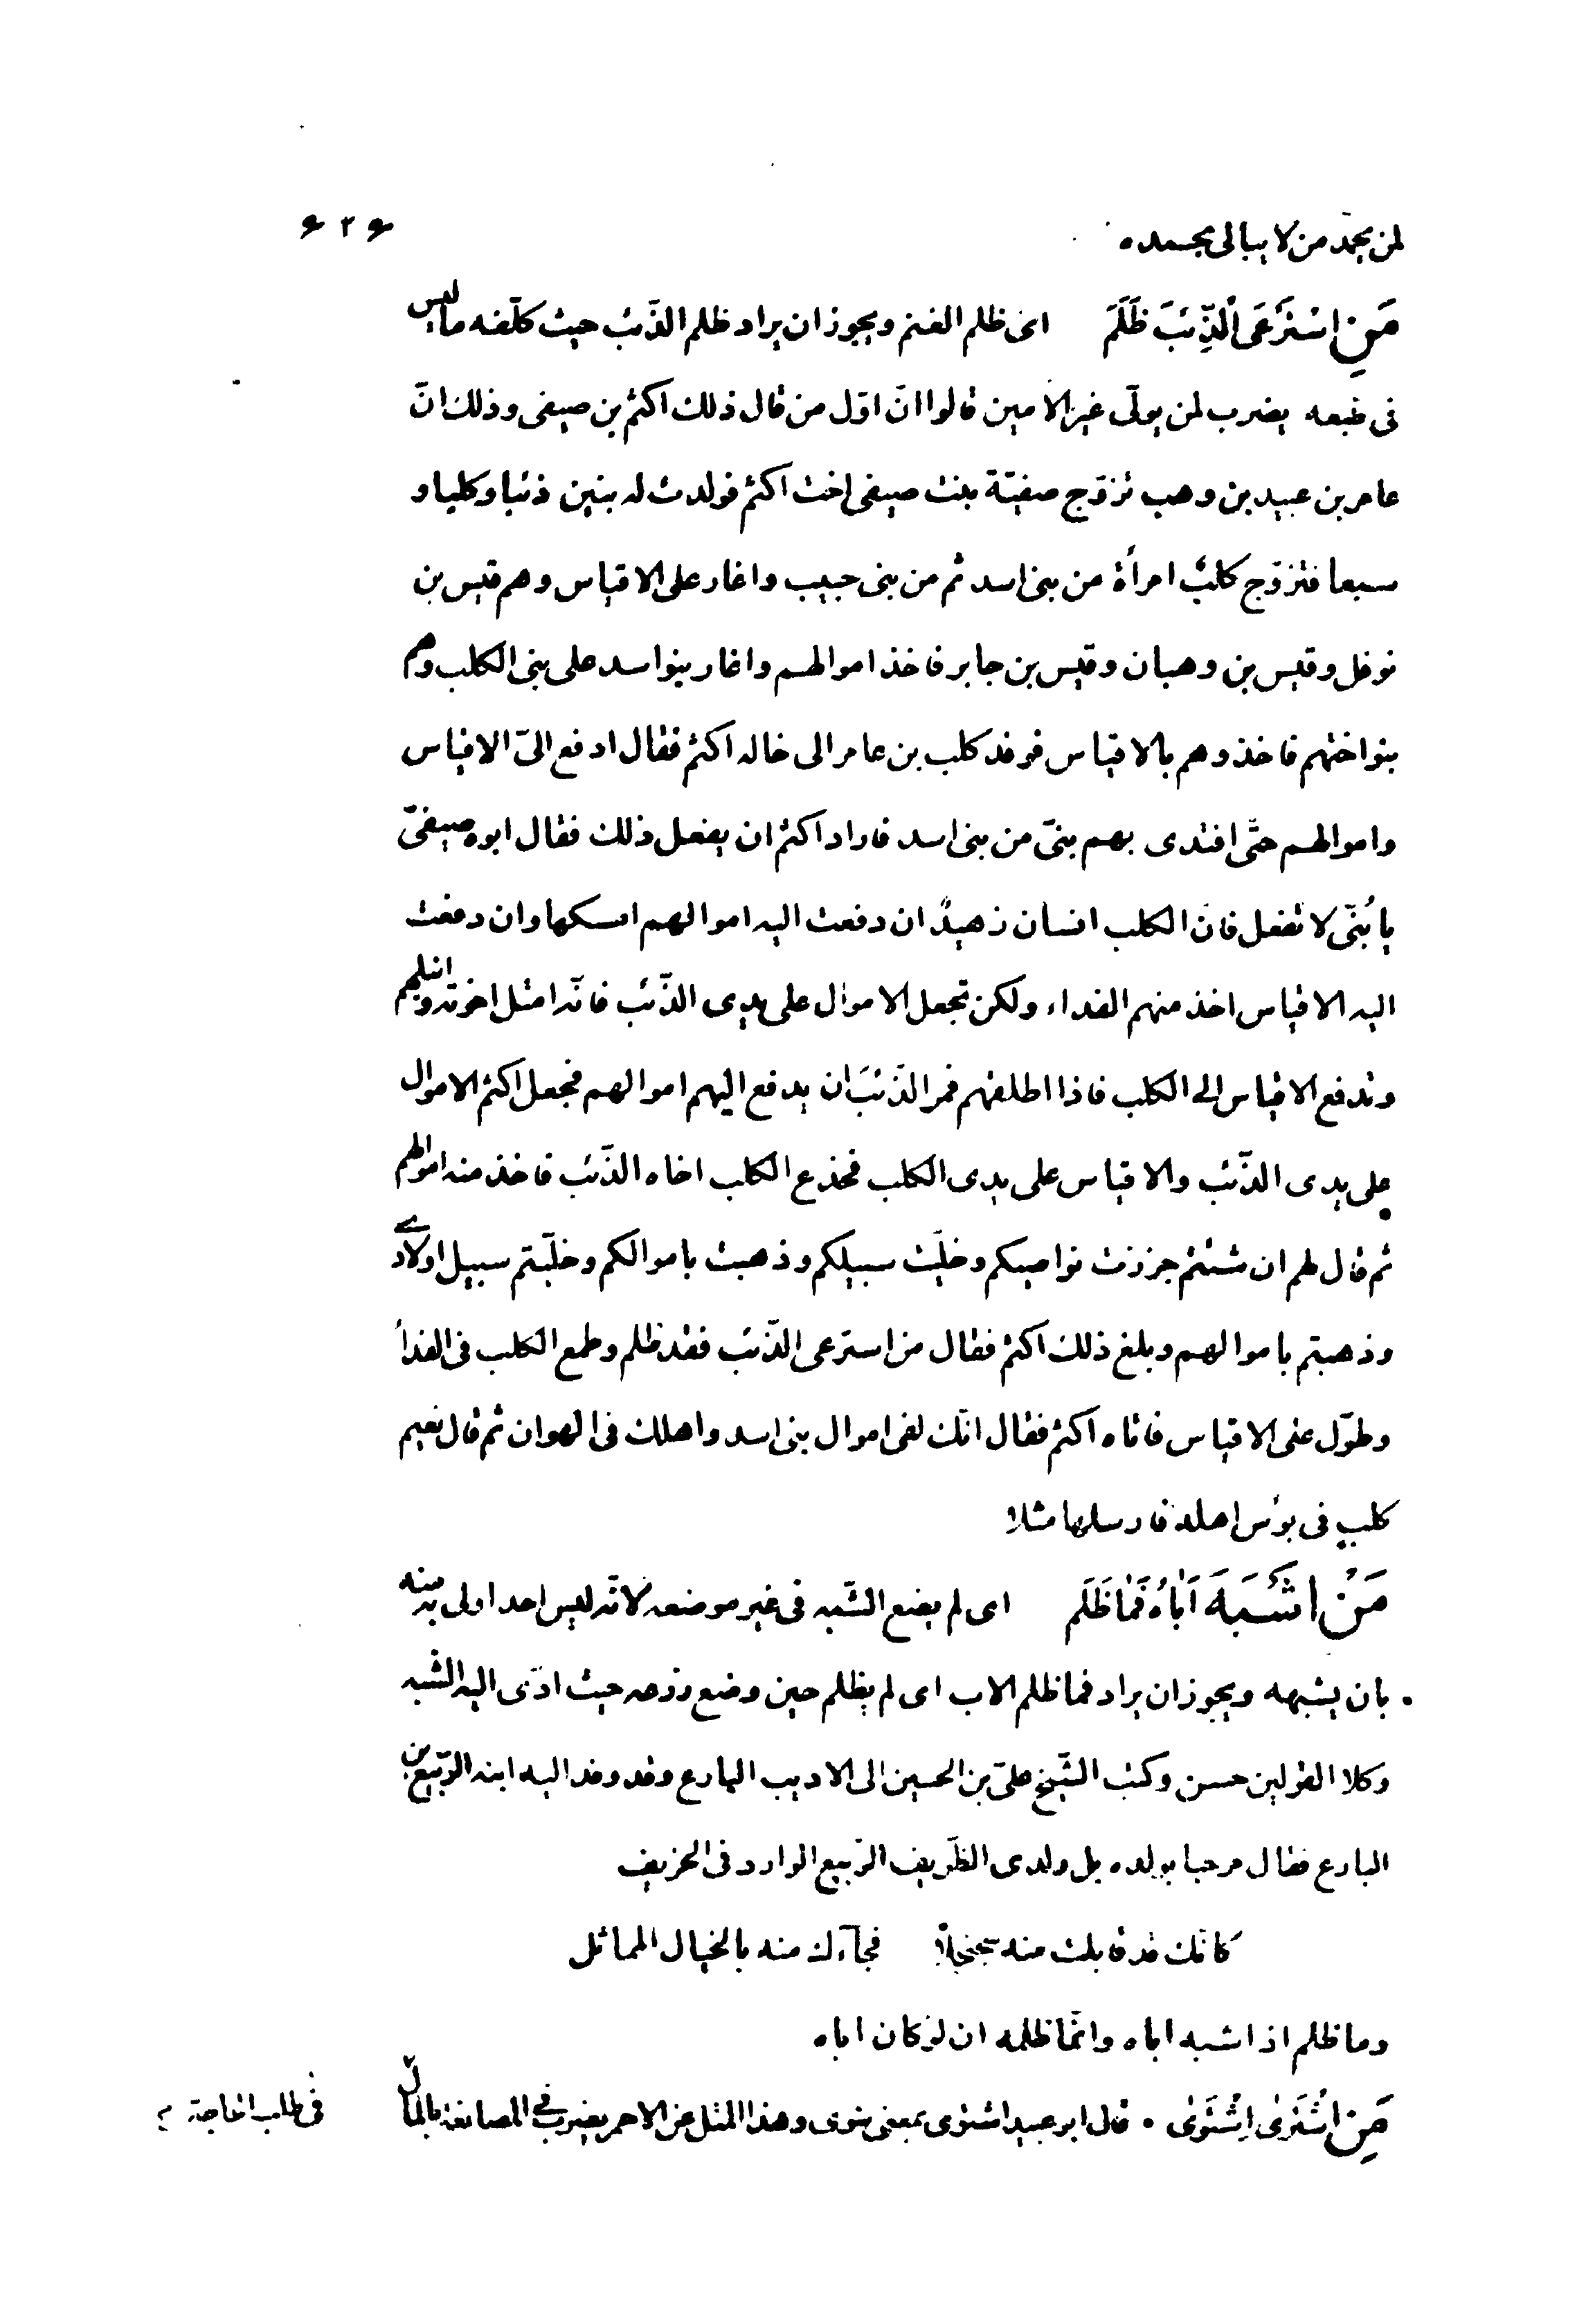 ۶۲۶
لمن يحمد من لا يبالى بحمده
مَنِ اسْتَرْعَى الْذِّئبَ ظَلَمَ اى ظلم الغنم ويجوز ان يراد ظلم الذّئب حيث كلّفه ما ليس
فى طبعه يضرب لمن يولّى غير الامين قالوا انّ اوّل من قال ذلك اكثم بن صيفى وذلك انّ
عامر بن عبيد بن وهب تزوّج صفيّة بنت صيفى اخت اكثم فولدت له بنين ذئبا وكلبا و
سبعا فتزوّج كلبٌ امرأة من بنى اسد ثم من بنى حبيب واغار على الاقياس وهم قيس بن
نوفل وقيس بن وهبان وقيس بن جابر فاخذ اموالهم واغار بنوا سد على بنى الكلب وهم
بنوا ختهم فاخذوهم بالاقياس فوفد كلب بن عامر الى خاله اكثم فقال ادفع الىّ الاقياس
واموالهم حتّى افتدى بهم بنىّ من بنى اسد فاراد اكثم ان يفعل ذلك فقال ابوه صيفىّ
يا بُنَّى لا تفعل فانّ الكلب انسان زهيدٌ ان دفعت اليه اموالهم امسكها وان دفعت
اليه الاقياس اخذ منهم الفداء ولكن تجعل الاموال على يدى الذّئب فانّه امثل اخوته وانبلهم
وتدفع الاقياس الى الكلب فاذا اطلقهم فمر الذّئبَ ان يدفع اليهم اموالهم فجعل اكثم الاموال
على يدى الذّئب والاقياس على يدى الكلب فخدع الكلب اخاه الذّئب فاخذ منه اموالهم
ثم قال لهم ان شئتم جززت نواصيكم وخلّيت سبيلكم وذهبت باموالكم وخلّيتم سبيل اولادى
وذهبتم باموالهم وبلغ ذلك اكثم فقال من استرعى الذّئب فقد ظلم وطمع الكلب فى الفدأ
وطوّل على الاقياس فاتاه اكثم فقال انّك لفى اموال بنى اسد واهلك فى الهوان ثم قال نعيم
كلبٍ فى بؤس اهله فارسلها مثلا
مَنْ اَشْبَهَ اَبٰاهُ فَمٰا ظَلَم اى لم يضع الشّبه فى غير موضعه لانّه ليس احد اولى به منه
بان يشبهه ويجوز ان يراد فما ظلم الاب اى لم يظلم حين وضع زرعه حيث ادّى اليه الشبه
وكلا القولين حسن وكتب الشّيخ علىّ بن الحسين الى الاديب البارع وقد وفد اليه ابنه الرّبيع بن
البارع فقال مرحبا بولده بل ولدى الظّريف الرّبيع الوارد فى الخريف
كانّك قد قابلت منه سجنجلاً فجآءك منه بالخيال المماثل
وما ظلم اذا شبه اباه وانّما ظلمه ان لو كان اباه
مَنِ اشْتَرىٰ اِشْتَوىٰ قال ابو عبيد اشتوى بمعنى شوى وهذا المثل عن الاحمر يضرب فى المصانعة بالمال
فى طلب الحاجة